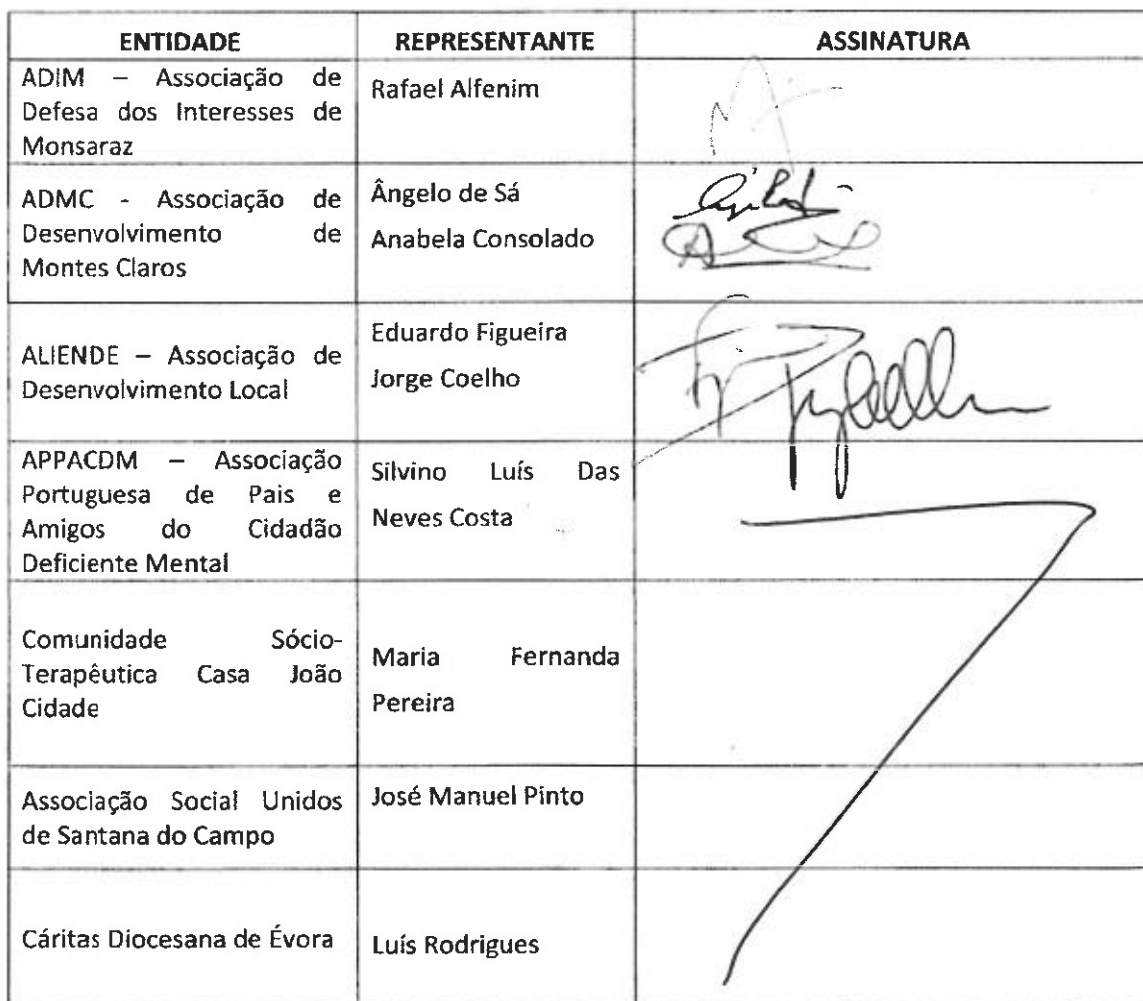 ENTIDADE
REPRESENTANTE
ASSINATURA
ADIM – Associação de
Defesa dos Interesses de
Monsaraz
Rafael Alfenim
ADMC - Associação de
Desenvolvimento de
Montes Claros
Ângelo de Sá
Anabela Consolado
ALIENDE – Associação de
Desenvolvimento Local
Eduardo Figueira
Jorge Coelho
APPACDM – Associação
Portuguesa de Pais e
Amigos do Cidadão
Deficiente Mental
Silvino Luís Das
Neves Costa
Comunidade Sócio-
Terapêutica Casa João
Cidade
Maria Fernanda
Pereira
Associação Social Unidos
de Santana do Campo
José Manuel Pinto
Cáritas Diocesana de Évora
Luís Rodrigues